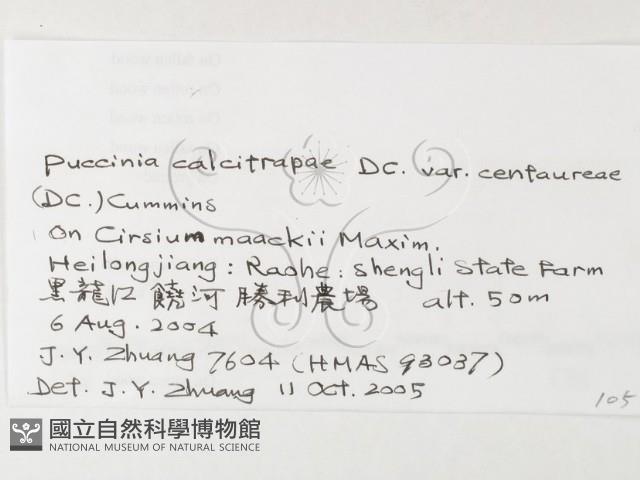 Puccinia calcitrapae DC. var. centaureae
(DC.) Cummins
On Cirsium maackii Maxim.
Heilongjiang: Raohe: Shengli State Farm
黑龍江 饒河 勝利農場 alt. 50m
6 Aug. 2004
J.Y. Zhuang 7604 (HMAS 93037)
Det. J.Y. Zhuang 11 Oct. 2005
105
國立自然科學博物館
NATIONAL MUSEUM OF NATURAL SCIENCE